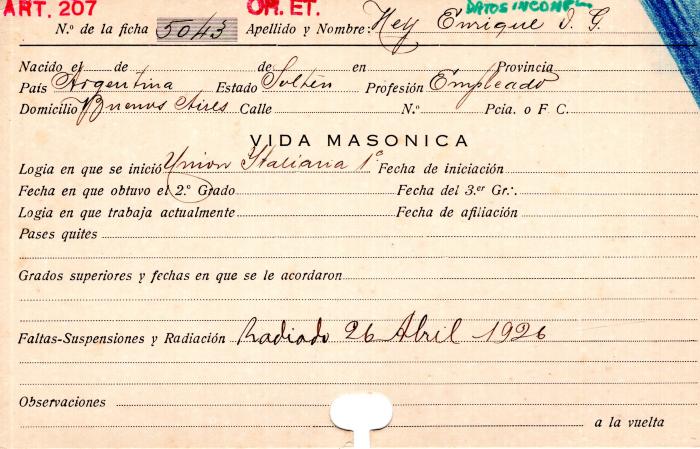 ART. 207 OR. ET. DATOS INCOMPL.
N.º de la ficha 5043 Apellido y Nombre: Hey Enrique I. G.
Nacido el de de en Provincia
País Argentina Estado Soltero Profesión Empleado
Domicilio Buenos Aires Calle N.º Pcia. o F. C.
VIDA MASONICA
Logia en que se inició Union Italiana 1º Fecha de iniciación
Fecha en que obtuvo el 2.º Grado Fecha del 3.er Gr∴
Logia en que trabaja actualmente Fecha de afiliación
Pases quites
Grados superiores y fechas en que se le acordaron
Faltas-Suspensiones y Radiación Radiado 26 Abril 1926
Observaciones
a la vuelta